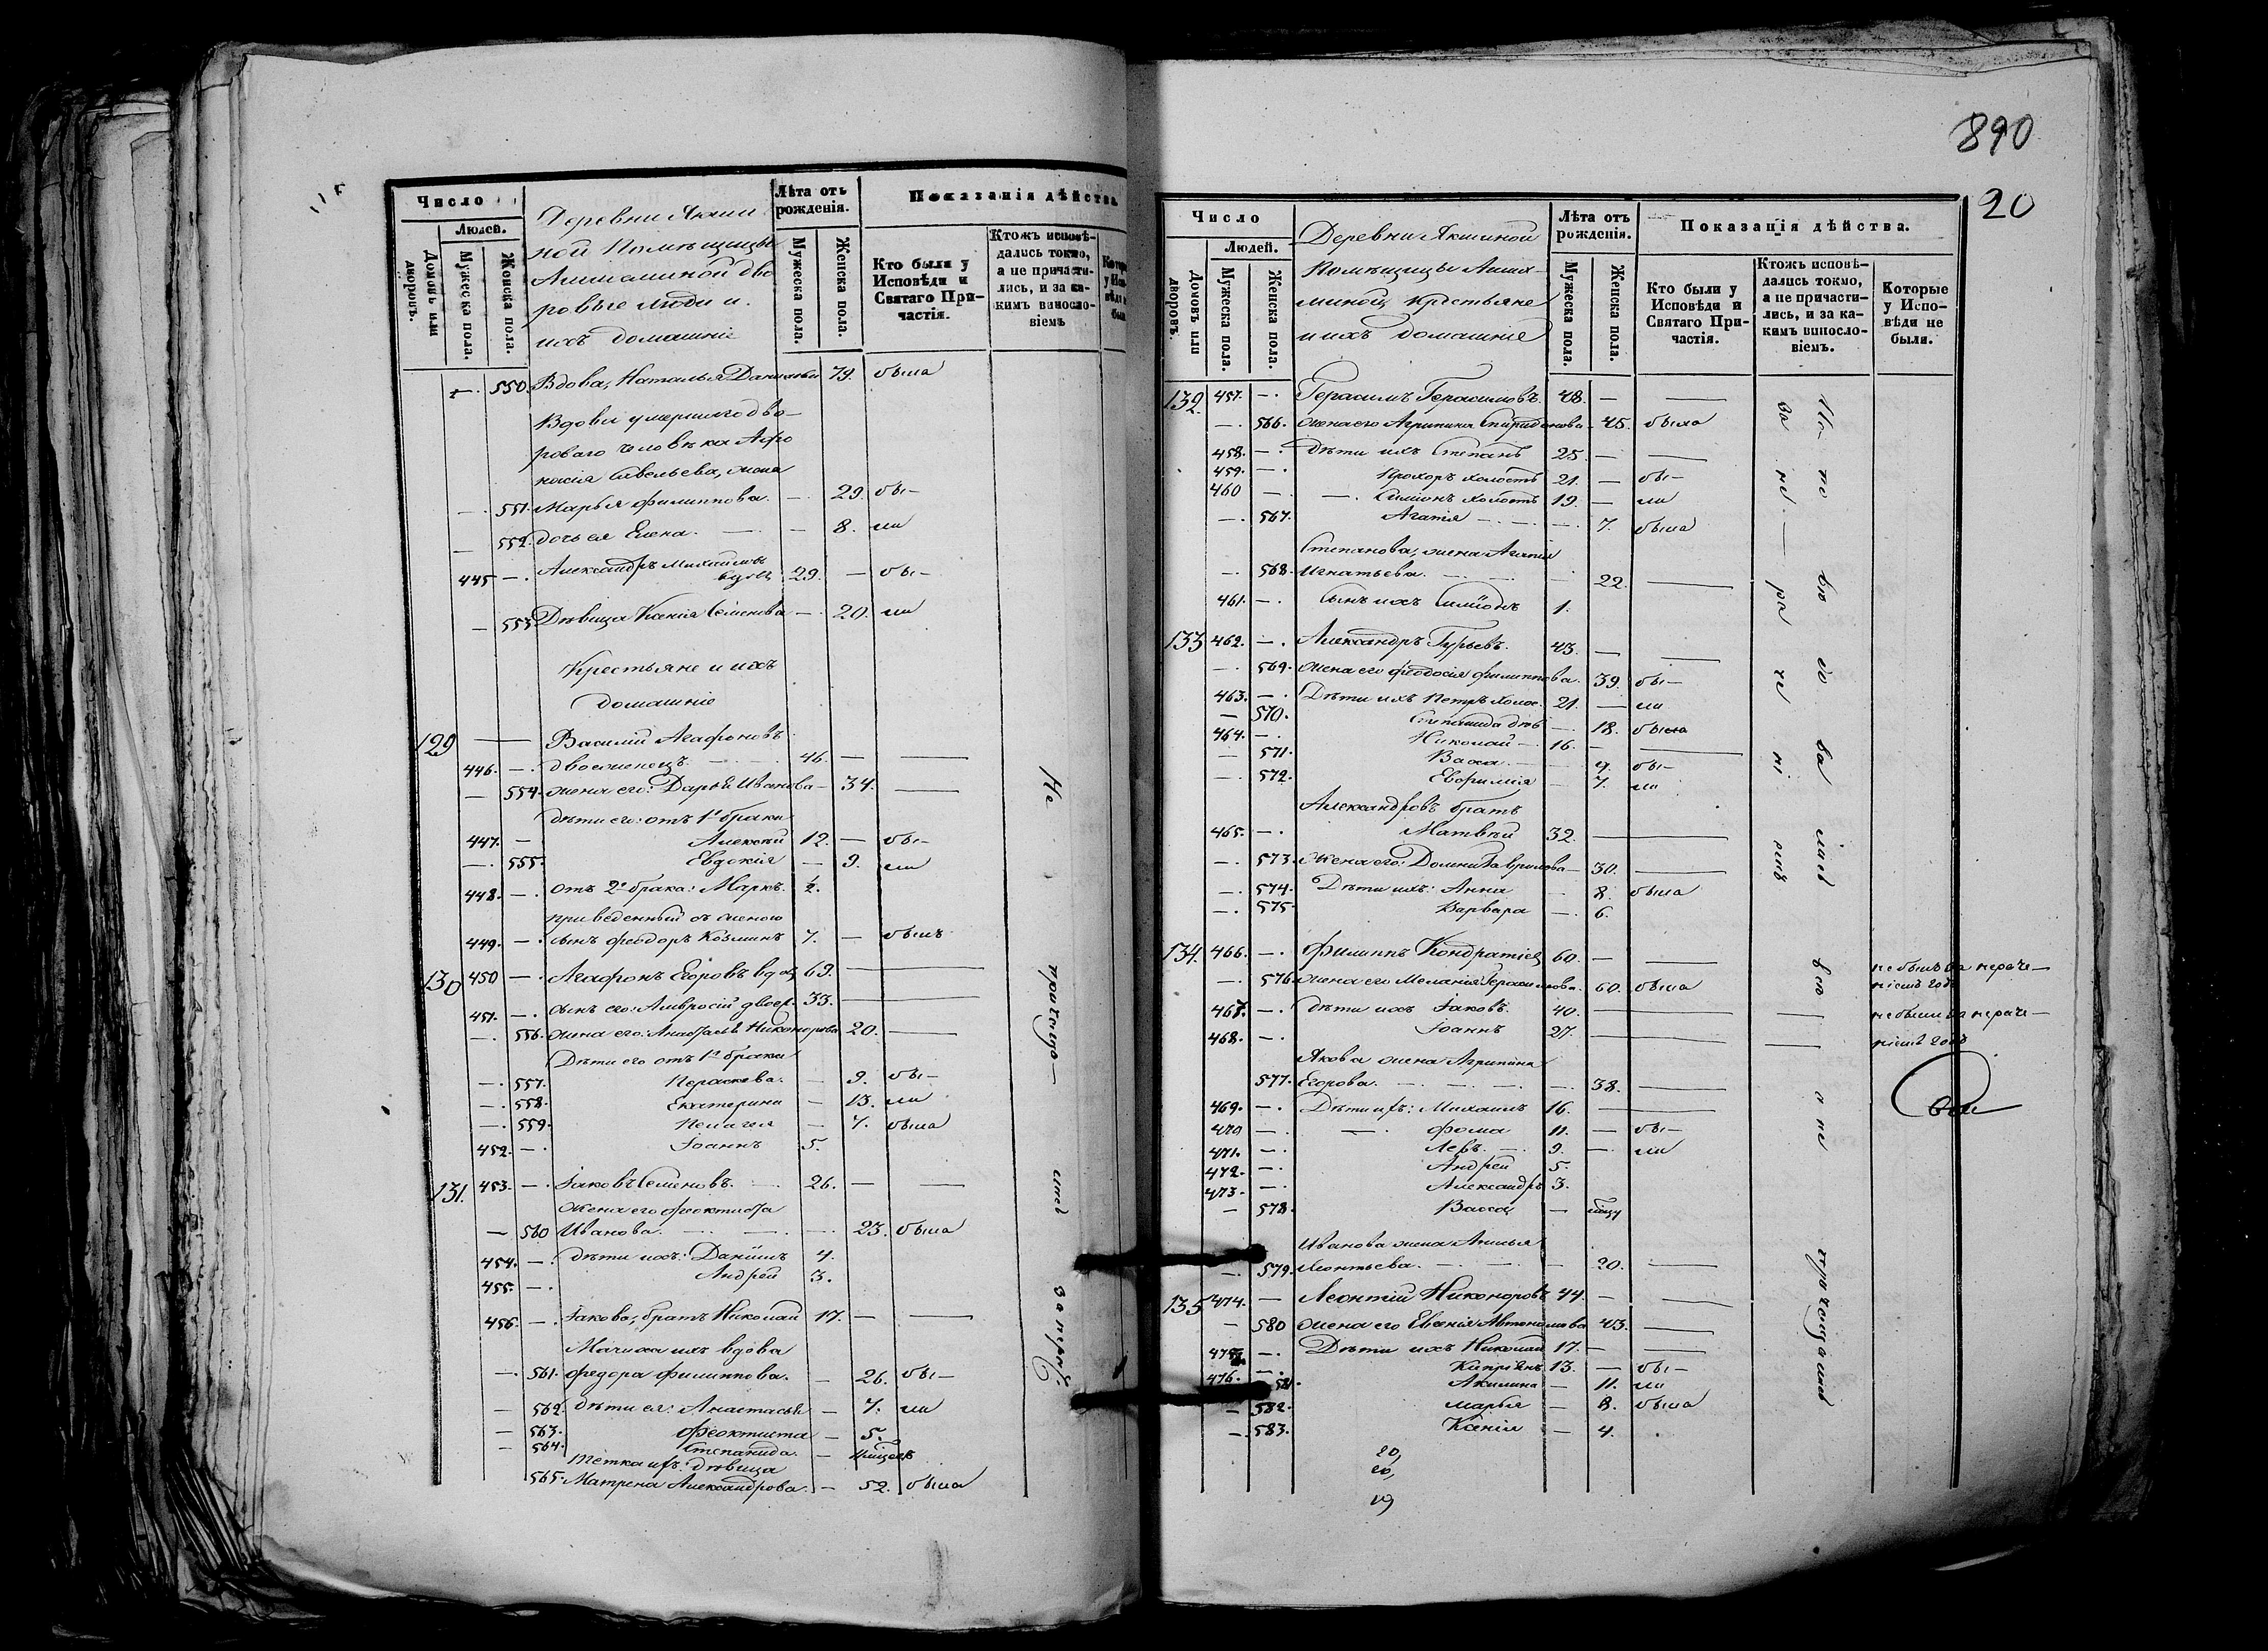 Число
Людей.
Домовъ или дворовъ.
Мужеска пола.
Женска пола.
Деревни Якши
ной Помѣщицы
дво
ровые люди и
ихъ домашніе
Лѣта отъ рожденія.
Мужеска пола.
Женска пола.
Показанія дѣйства
Кто были у Исповѣди и Святаго Причастія.
Ктожъ исповѣдались токмо, а не причастились, и за какимъ винословіемъ
—. 550. Вдова, Наталья 79. была
Вдовы умершаго дво—
роваго человѣка Афо
насія Савельева, жена
—. 551. Марья Филиппова. —. 29. бы—
— 552. дочь ея Елена. — — 8. ли
445 —. Александръ Михайловъ
вдовъ 29. — бы—
— 553. Дѣвица Ксенія Семенова — 20. ли
Крестьяне и ихъ
домашніе
129 — Василій Агафоновъ
446. —. двоеженецъ. 46. — —
— 554. жена его: Дарья Иванова — 34. —
дѣти его: отъ 1го брака
447. — Алексѣй 12. — бы—
—. 555. Евдокія — 9. ли
448. —. отъ 2го брака: Маркъ. ½.
приведенный съ женою
449. —. сынъ Феодоръ Козминъ 7. — былъ
130 450 —. Агафонъ Егоровъ вдовъ 69. —
451. —. сынъ его: Амвросій двоеж. 33. —
—. 556. жена его: Анастасья Никонорова 20. —
Дѣти его отъ 1го брака
—. 557. Пераскева. — 9. бы—
—. 558. Екатерина — 13. ли
—. 559. Пелагея — 7. была
452. —. Іоаннъ 5.
131. 453. —. Іаковъ Семеновъ. 26. — —
Жена его Феоктиста
— 560 Иванова. 23. была
454. —. дѣти ихъ: Даніилъ 4.
455. —. Андрей 3.
456. —. Іакова, братъ Николай 17. — —
Мачиха ихъ вдова
—. 561. Федора Филиппова. — 26. бы—
— 562. дѣти ея: Анастасья — 7. ли
— 563. Феоктиста — 5.
— 564. Степанида. —
Тетка ихъ: дѣвица
565. Матрена Александрова. — 52. была
Не
причащо—
лись
за
890
20
Число
Людей.
Домовъ или дворовъ.
Мужеска пола.
Женска пола.
Деревни Якшиной
Помѣщицы
крестьяне
и ихъ домашніе
Лѣта отъ рожденія.
Мужеска пола.
Женска пола.
Показанія дѣйства.
Кто были у Исповѣди и Святаго Причастія.
Ктожъ исповѣдались токмо, а не причастились, и за какимъ винословіемъ.
Которые у Исповѣди не были.
132. 457. —. Герасимъ Герасимовъ. 48. — —
—. 566. Жена его Агрипина Спиридонова — 45. была
458. —. Дѣти ихъ Степанъ 25. — —
459. —. Прохоръ холостъ 21. — бы—
460 — —. Симіонъ холостъ 19. — ли
—. 567. Агапія —. 7. была
Степанова, жена Агапія
—. 568. Игнатьева. 22. —
461. —. Сынъ ихъ Симіонъ 1.
133 462. —. Александръ Гурьевъ. 43. — —
—. 569. Жена его Феодосія Филиппова. 39. бы—
463. —. Дѣти ихъ Петръ холос. 21. — ли
— 570. Степанида дѣв — 18. была
464. —. Николай — 16. — —
— 571. Васса. 9. бы—
—. 572. Евфимія — 7. ли
Александровъ братъ
465. —. Матвѣй 32. —
—. 573. Жена его: Домна Гаврилова — 30. —
—. 574. Дѣти ихъ: Анна — 8. была
—. 575. Варвара —. 6.
134. 466. —. Филиппъ Кондратіев 60. — — не былъ за нераче—
ніемъ годъ
—. 576. Жена его Меланія Герасимова. 60. была
467. —. Дѣти ихъ Іаковъ. 40. — — не были за нераче—
468. —. Іоаннъ 27. — — ніемъ годъ
Якова жена Агрипина
577. Егорова. —. 38. —
469. —. Дѣти ихъ: Михаилъ 16. —
470 —. —. Фома 11. — бы—
471. —. Левъ. 9. — ли
472. —. Андрей 5.
473. —. Александръ 3.
— 578. Васса —
Иванова жена
—. 579. Леонтьева. —. 20. —
135 474. — Леонтій Никоноровъ 44. — —
— 580 Жена его Евгенія Автономова 43. —
475. —. Дѣти ихъ Николай 17. — —
476. —. Кипріянъ 13. — бы—
581. Акилина — 11. ли
— 582. Марья — 8. была
—. 583. Ксенія — 4.
20,
20,
19